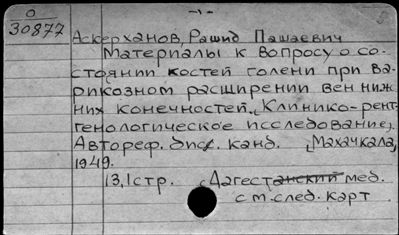 О
30877
-1-
Аскерханов, Рашид Пашаевич
Материалы к вопросу о со-
стоянии костей голени при ва-
рикозном расширении вен ниж-
них конечностей. (Клинико-рент-
генологическое исследование).
Автореф. дисс. канд. (Махачкала,
1949.
13,1 стр. (Дагестанский мед.
с м. след. карт